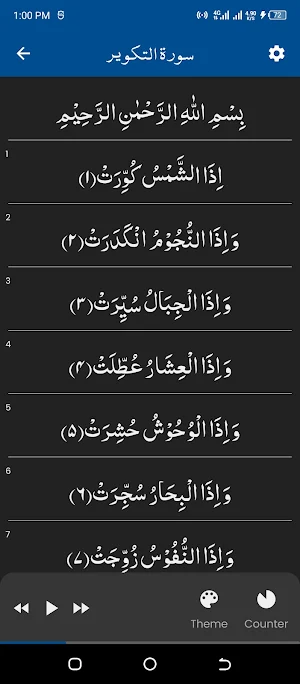 1:00 PM
4G 4G 4.90 KB/S 72
سورة التكوير
بِسْمِ اللّٰهِ الرَّحْمٰنِ الرَّحِيْمِ
1
اِذَا الشَّمْسُ كُوِّرَتْ(۱)
2
وَاِذَا النُّجُوْمُ انْكَدَرَتْ(۲)
3
وَاِذَا الْجِبَالُ سُيِّرَتْ(۳)
4
وَاِذَا الْعِشَارُ عُطِّلَتْ(۴)
5
وَاِذَا الْوُحُوْشُ حُشِرَتْ(۵)
6
وَاِذَا الْبِحَارُ سُجِّرَتْ(۶)
7
وَاِذَا النُّفُوْسُ زُوِّجَتْ(۷)
Theme Counter